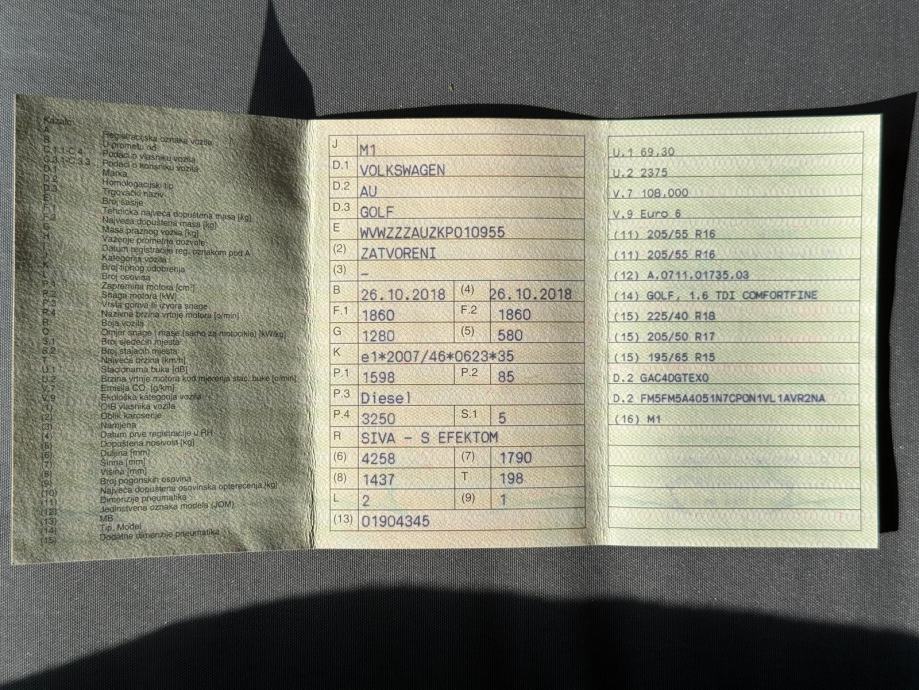 Kazalo:
A Registracijska oznaka vozila
B U prometu od
C.1.1-C.4 Podaci o vlasniku vozila
C.3.1-C.3.3 Podaci o korisniku vozila
D.1 Marka
D.2 Homologacijski tip
D.3 Trgovački naziv
E Broj šasije
F.1 Tehnička najveća dopuštena masa [kg]
F.2 Najveća dopuštena masa [kg]
G Masa praznog vozila [kg]
H Važenje prometne dozvole
Datum registracije reg. oznakom pod A
Kategorija vozila
Broj tipnog odobrenja
Broj osovina
P.1 Zapremina motora [cm³]
P.2 Snaga motora [kW]
P.3 Vrsta goriva ili izvora snage
P.4 Nazivna brzina vrtnje motora [o/min]
R Boja vozila
Omjer snage i mase (samo za motocikle) [kW/kg]
S.1 Broj sjedećih mjesta
S.2 Broj stajaćih mjesta
T Najveća brzina [km/h]
U.1 Stacionarna buka [dB]
U.2 Brzina vrtnje motora kod mjerenja stac. buke [o/min]
V.7 Emisija CO₂ [g/km]
V.9 Ekološka kategorija vozila
(1) OIB vlasnika vozila
(2) Oblik karoserije
(3) Namjena
(4) Datum prve registracije u RH
(5) Dopuštena nosivost [kg]
(6) Duljina [mm]
(7) Širina [mm]
(8) Visina [mm]
(9) Broj pogonskih osovina
(10) Najveća dopuštena osovinska opterećenja [kg]
(11) Dimenzije pneumatika
(12) Jedinstvena oznaka modela (JOM)
(13) MB
(14) Tip, Model
(15) Dodatne dimenzije pneumatika
J M1
D.1 VOLKSWAGEN
D.2 AU
D.3 GOLF
E WVWZZZAUZKP010955
(2) ZATVORENI
(3) –
B 26.10.2018 (4) 26.10.2018
F.1 1860 F.2 1860
G 1280 (5) 580
K e1*2007/46*0623*35
P.1 1598 P.2 85
P.3 Diesel
P.4 3250 S.1 5
R SIVA - S EFEKTOM
(6) 4258 (7) 1790
(8) 1437 T 198
L 2 (9) 1
(13) 01904345
U.1 69,30
U.2 2375
V.7 108,000
V.9 Euro 6
(11) 205/55 R16
(11) 205/55 R16
(12) A.0711.01735.03
(14) GOLF, 1.6 TDI COMFORTFINE
(15) 225/40 R18
(15) 205/50 R17
(15) 195/65 R15
D.2 GAC4DGTEX0
D.2 FM5FM5A4051N7CPON1VL1AVR2NA
(16) M1